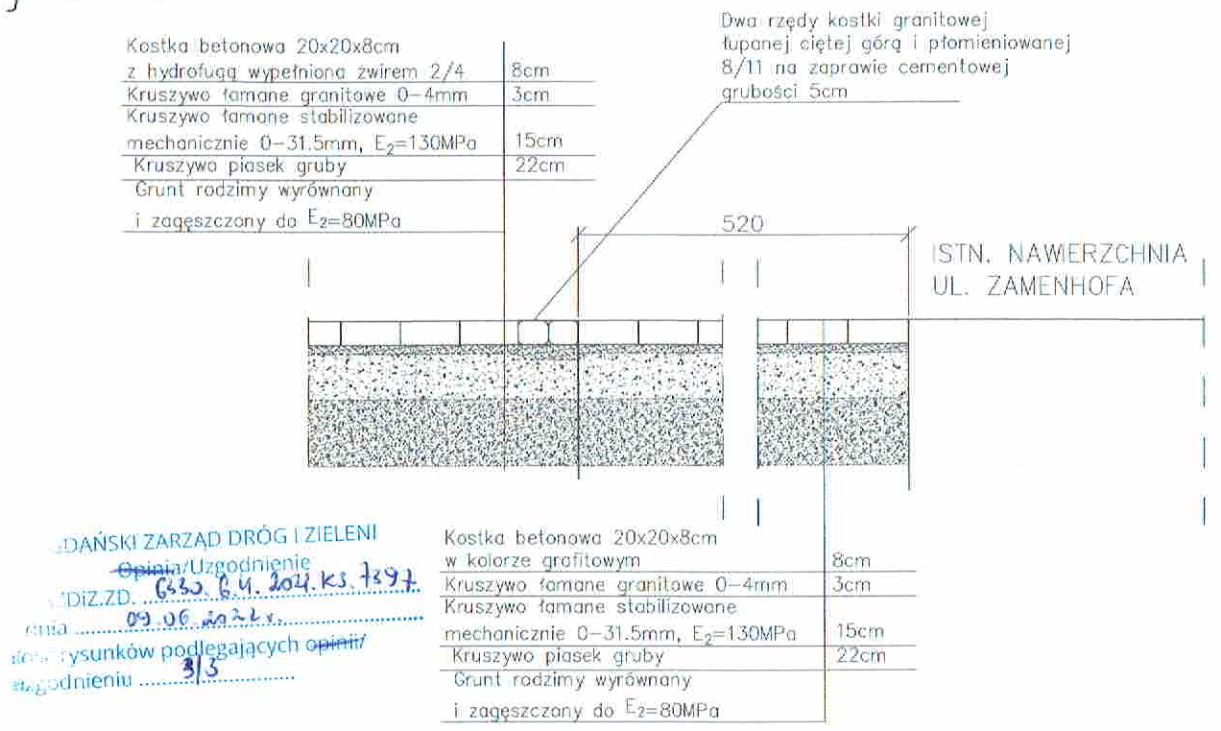 Kostka betonowa 20x20x8cm
z hydrofugą wypełniona żwirem 2/4 8cm
Kruszywo łamane granitowe 0-4mm 3cm
Kruszywo łamane stabilizowane
mechanicznie 0-31.5mm, E2=130MPa 15cm
Kruszywo piasek gruby 22cm
Grunt rodzimy wyrównany
i zagęszczony do E2=80MPa
Dwa rzędy kostki granitowej
łupanej ciętej górą i płomieniowanej
8/11 na zaprawie cementowej
grubości 5cm
520
ISTN. NAWIERZCHNIA
UL. ZAMENHOFA
DAŃSKI ZARZĄD DRÓG I ZIELENI
Opinia/Uzgodnienie
DiZ.ZD.
09.06
rysunków podlegających opinii/
uzgodnieniu 3/3
Kostka betonowa 20x20x8cm
w kolorze grafitowym 8cm
Kruszywo łamane granitowe 0-4mm 3cm
Kruszywo łamane stabilizowane
mechanicznie 0-31.5mm, E2=130MPa 15cm
Kruszywo piasek gruby 22cm
Grunt rodzimy wyrównany
i zagęszczony do E2=80MPa